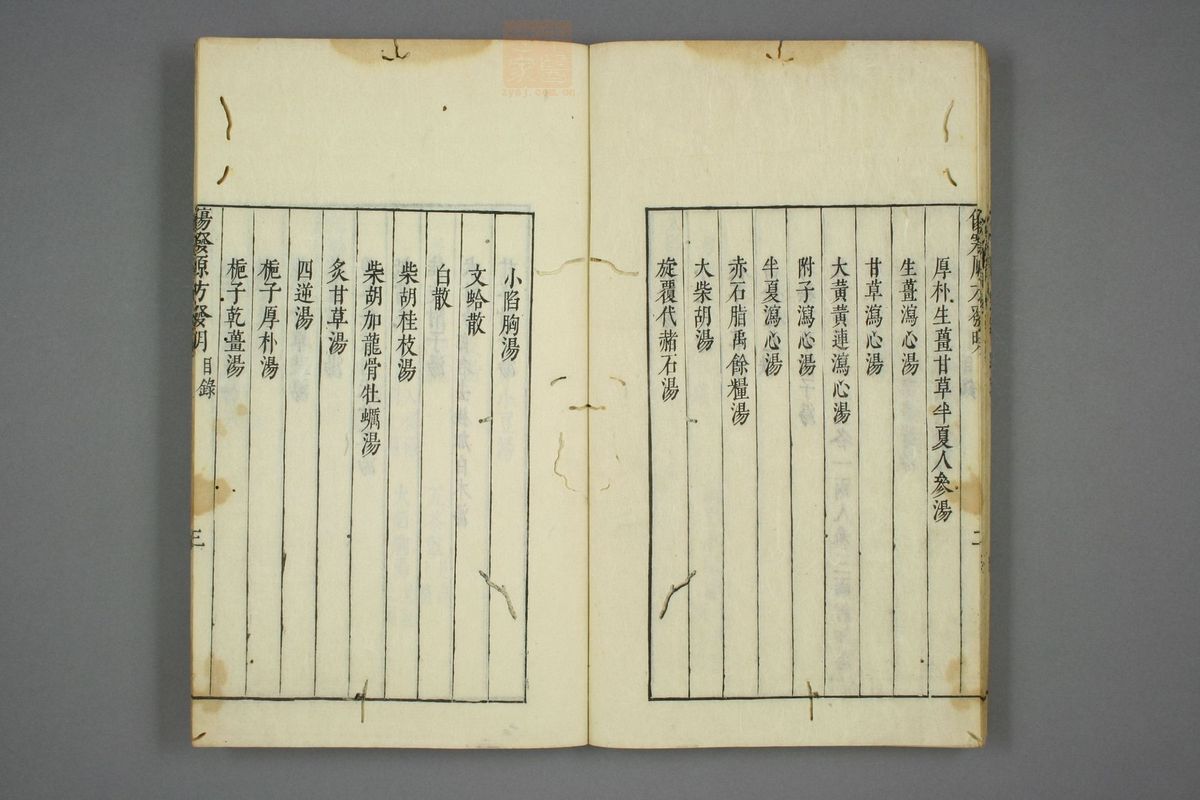 厚朴生薑甘草半夏人參湯
生薑瀉心湯
甘草瀉心湯
大黃黃連瀉心湯
附子瀉心湯
半夏瀉心湯
赤石脂禹餘糧湯
大柴胡湯
旋覆代赭石湯
小陷胸湯
文蛤散
白散
柴胡桂枝湯
柴胡加龍骨牡蠣湯
炙甘草湯
四逆湯
梔子厚朴湯
梔子乾薑湯
目錄
三
zysj.com.cn